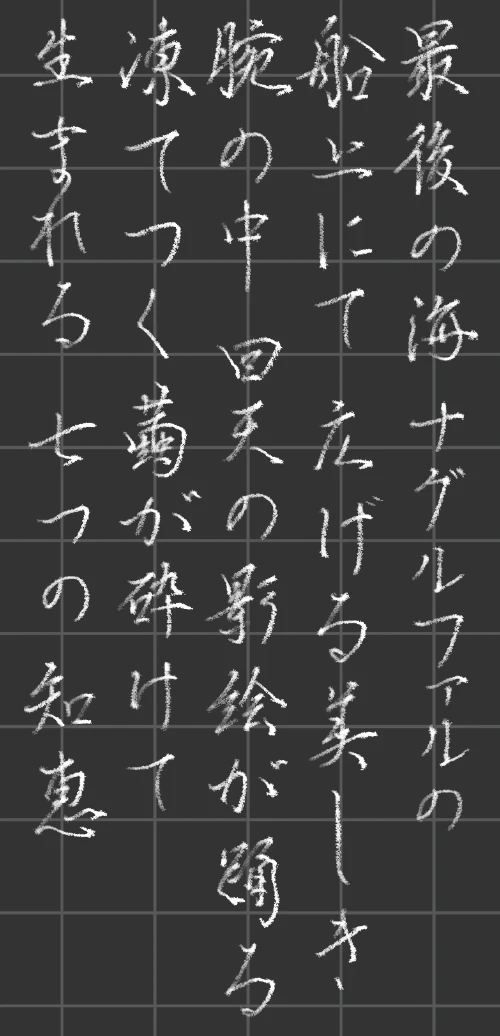 最後の海 ナグルファルの
船上にて 広げる美しき
腕の中 回天の影絵が踊る
凍てつく繭が砕けて
生まれる 七つの知恵